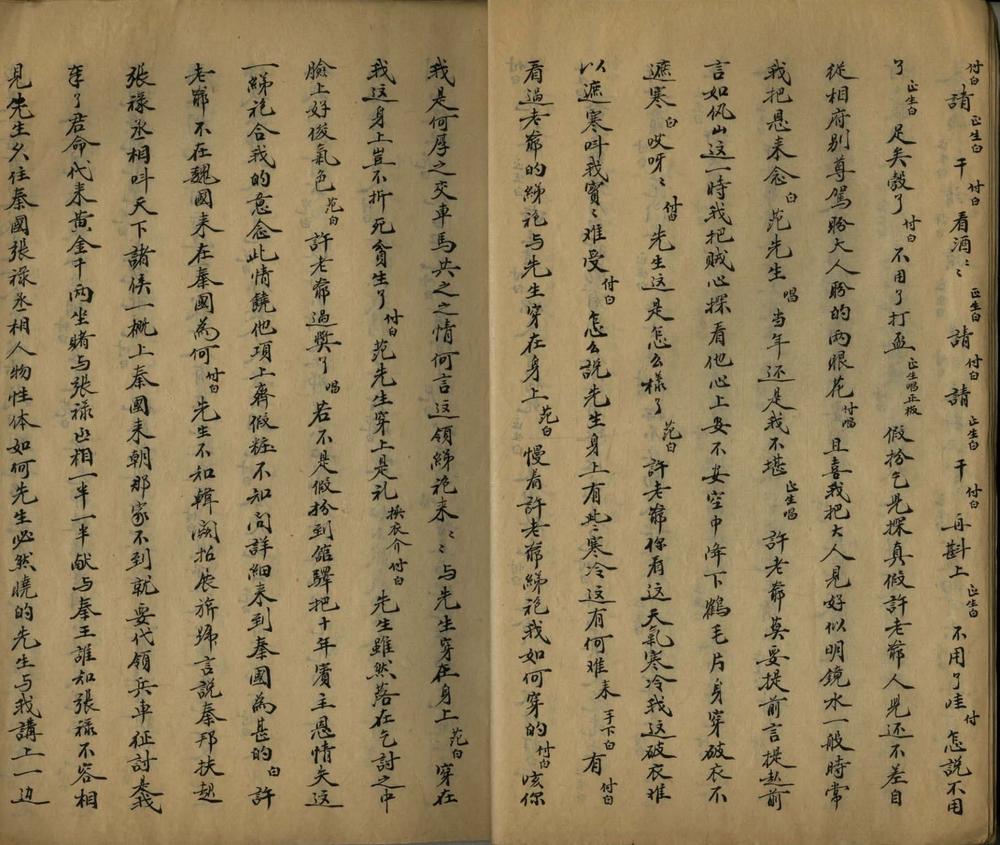 付白請正生白干付白看酒〻正生白請付白請正生白干付白再斟上正生白不用了哇付怎説不用
了正生白足矣彀了付白不用了打盃正生唱正板假扮乞兒探真假許老爺人兒还不差自
從相府別尊駕盼大人盼的兩眼花付唱且喜我把大人見好似明鏡水一般時常
我把恩来念白范先生唱当年还是我不堪正生唱許老爺莫要提前言提起前
言如佩山这一時我把賊心探看他心上安不安空中降下鶴毛片身穿破衣不
遮寒白哎呀〻付白先生这是怎么樣了范白許老爺你看这天氣寒冷我这破衣难
以遮寒叫我寔〻难受付白怎么說先生身上有些〻寒冷这有何难来手下白有付白
看过老爺的綈袍与先生穿在身上范白慢着許老爺綈袍我如何穿的付白咳你
我是何厚之交車馬共之之情何言这領綈袍来〻〻与先生穿在身上范白穿在
我这身上豈不折死貧生了付白范先生穿上是礼换衣介付白先生雖然落在乞討之中
臉上好俊氣色范白許老爺過獎了唱若不是假扮到舘驛把十年賓主恩情失这
一綈袍合我的意念此情饒他項上齊假粧不知问詳細来到秦國為甚的白許
老爺不在魏國来在秦國為何付白先生不知韓闕招展旂號言說秦邦扶起
張祿丞相叫天下諸侯一概上秦國来朝那家不到就要代領兵車征討我
奉了君命代来黄金千兩坐賭与張祿丞相一半一半献与秦王誰知張祿不容相
見先生久住秦國張祿丞相人物性体如何先生必然曉的先生与我講上一边